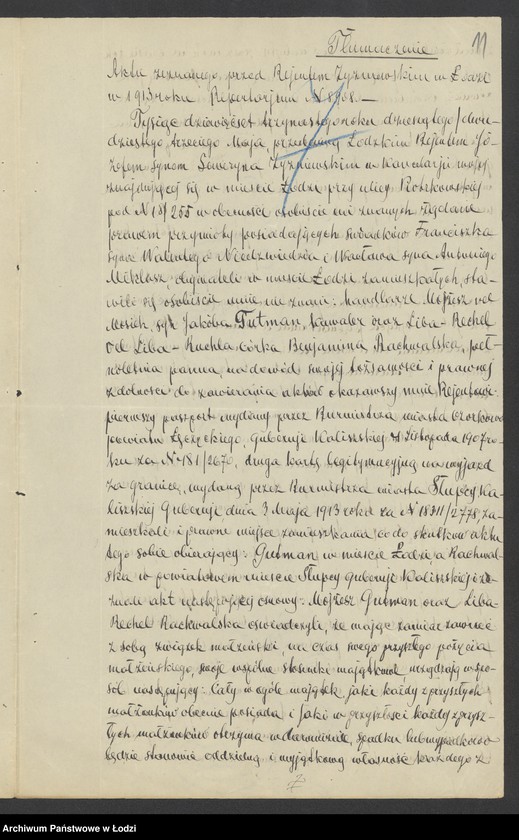 11
Tłumaczenie
Aktu zeznanego przed Rejentem Żyznowskim w Łodzi
w 1913 roku Repertorjum № 8908.—
Tysiąc dziewięćset trzynastego roku dziesiątego/dwu-
dziestego trzeciego Maja, przede mną Łódzkim Rejentem Jó-
zefem synem Seweryna Żyznowskim w kancelarji mojej
znajdującej się w mieście Łodzi przy ulicy Piotrkowskiej
pod № 18/255 w obecności osobiście mi znanych żądane
prawem przymioty posiadających świadków Franciszka
syna Walentego Niedźwiedzia i Wacława syna Antoniego
Miklasz, obywateli w mieście Łodzi zamieszkałych, sta-
wili się osobiście mnie nie znani: handlarze Mojżesz vel
Mosiek, syn Jakóba Gutman, kawaler oraz Liba-Rechel
vel Liba-Ruchla córka Benjamina Rachwalska, peł-
noletnia panna, na dowód swojej tożsamości i prawnej
zdolności do zawierania aktów okazawszy mnie, Rejentowi:
pierwszy paszport wydany przez Burmistrza miasta Ozorkowa
powiatu Łęczyckiego, Gubernji Kaliskiej Listopada 1907 ro-
ku za № 481/2670, druga kartę legitymacyjną na wyjazd
za granicę, wydaną przez Burmistrza miasta Słupcy Ka-
liskiej Gubernji dnia 3 Maja 1913 roku za № 18311/2778, za-
mieszkali i prawne miejsce zamieszkania co do skutków aktu
tego sobie obierający: Gutman w mieście Łodzi, a Rachwal-
ska w powiatowem mieście Słupcy gubernji Kaliskiej i ze-
znali akt następującej osnowy: Mojżesz Gutman oraz Liba-
Rechel Rachwalska oświadczyli, że mając zamiar zawrzeć
z sobą związek małżeński, na czas swego przyszłego pożycia
małżeńskiego, swoje wspólne stosunki majątkowe urządzają w spo-
sób następujący: Cały w ogóle majątek, jaki każdy z przyszłych
małżonków obecnie posiada i jaki w przyszłości każdy z przysz-
łych małżonków otrzyma w darowiźnie, spadku lub wypadkowo
będzie stanowić oddzielną i wyjątkową własność każdego z
Archiwum Państwowe w Łodzi
Archiwum Państwowe w Łodzi